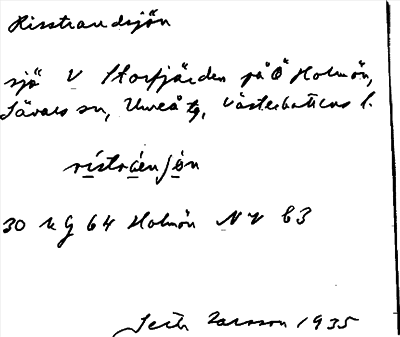 Risstrandsjön
sjö V Storfjärden på Ö Holmön,
Sävars sn, Umeå tg, Västerbottens l.
rístráensjön
30 u G 64 Holmön NV b3
Larsson 1935